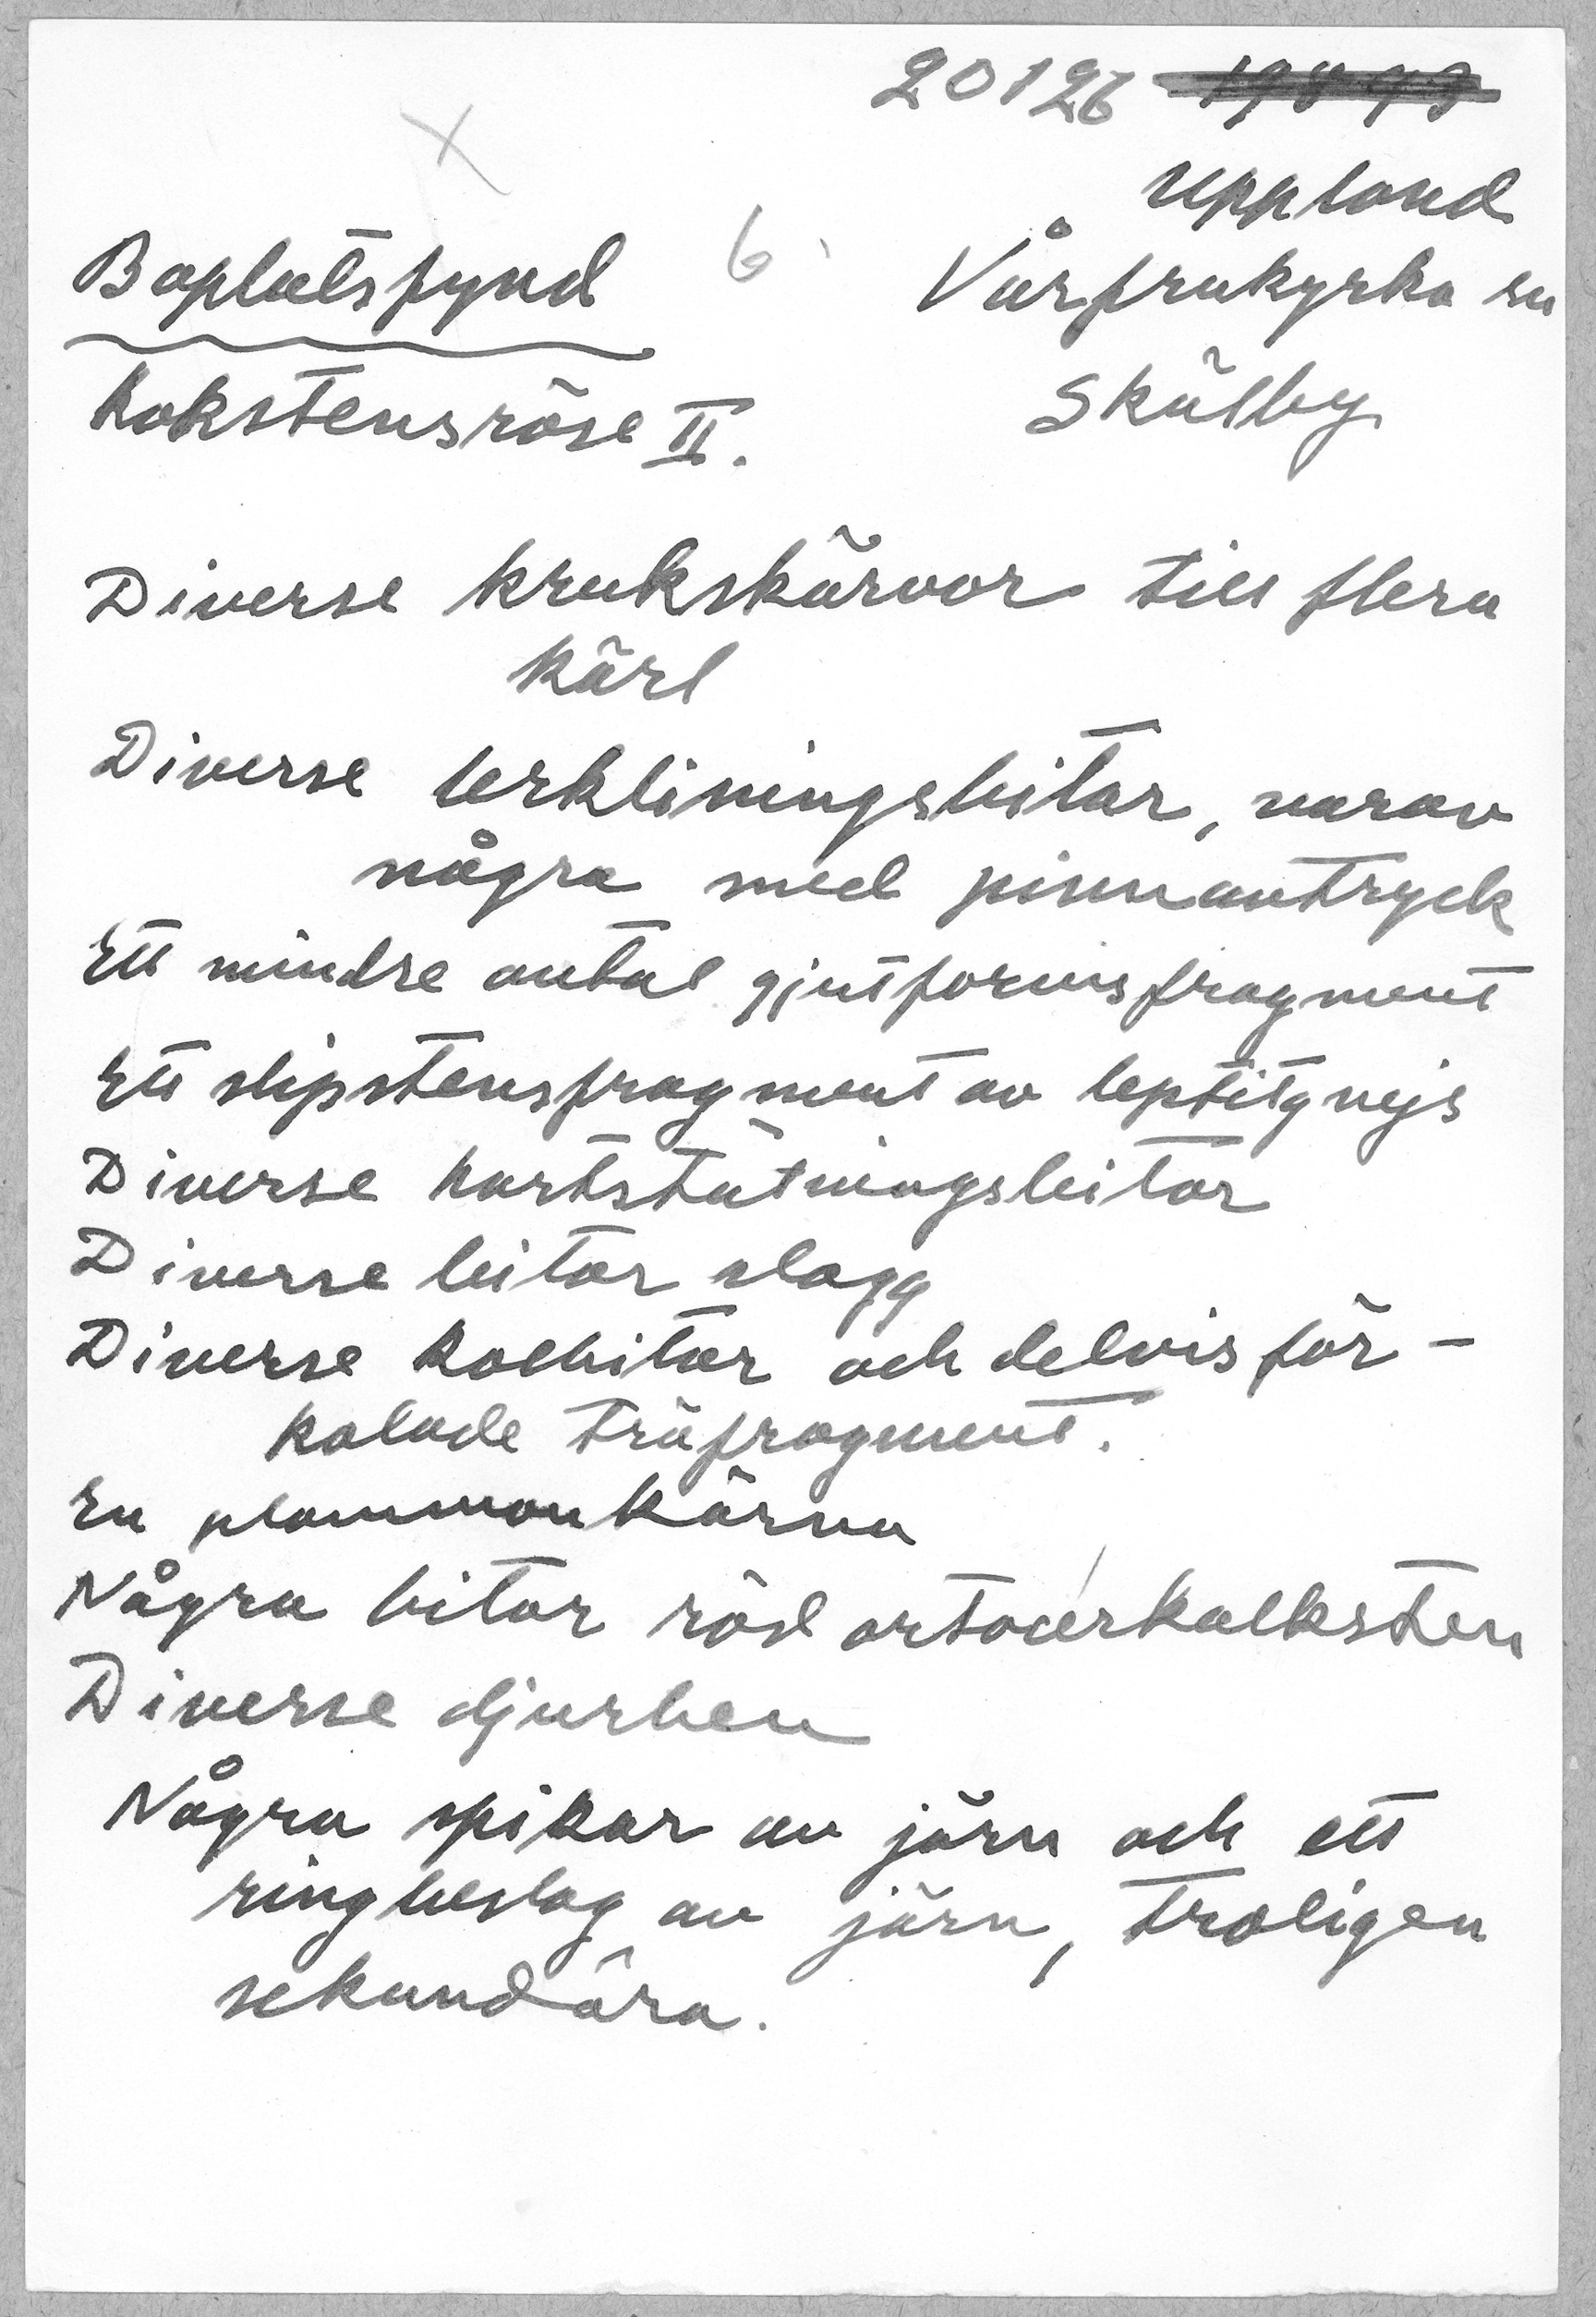 20126 19897
Uppland
Boplatsfynd 6. Vårfrukyrka sn
Kokstensröse II. Skälby
Diverse krukskärvor till flera
kärl
Diverse lerkliningsbitar, varav
några med pinnavtryck
Ett mindre antal gjutformsfragment
Ett slipstensfragment av leptitgnejs
Diverse hartstätningsbitar
Diverse bitar slagg
Diverse kolbitar och delvis för-
kolade träfragment.
En plommonkärna
Några bitar röd ortocerkalksten
Diverse djurben
Några spikar av järn och ett
ringbeslag av järn, troligen
sekundära.